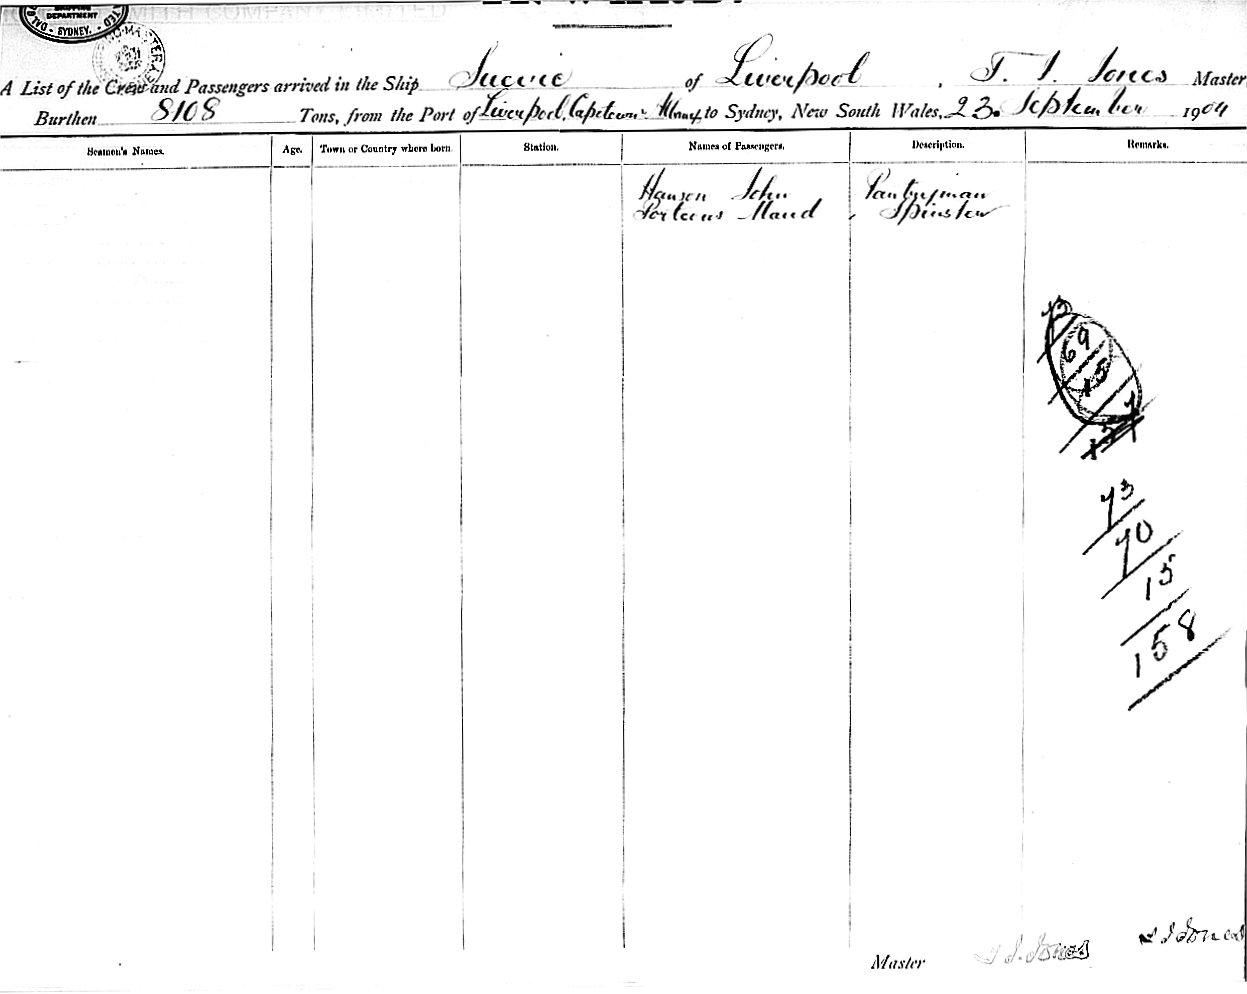 DEPARTMENT
SYDNEY.
A List of the Crew and Passengers arrived in the Ship Suevic of Liverpool, T. J. Jones Master
Burthen 8108 Tons, from the Port of Liverpool, Capetown & to Sydney, New South Wales, 23. September 1904
Seamen's Names. Age. Town or Country where born. Station. Names of Passengers. Description. Remarks.
Hanson John Pantryman
Porteous Maud Spinster
73
69
15
157
73
70
15
158
Master T J. Jones T J Jones